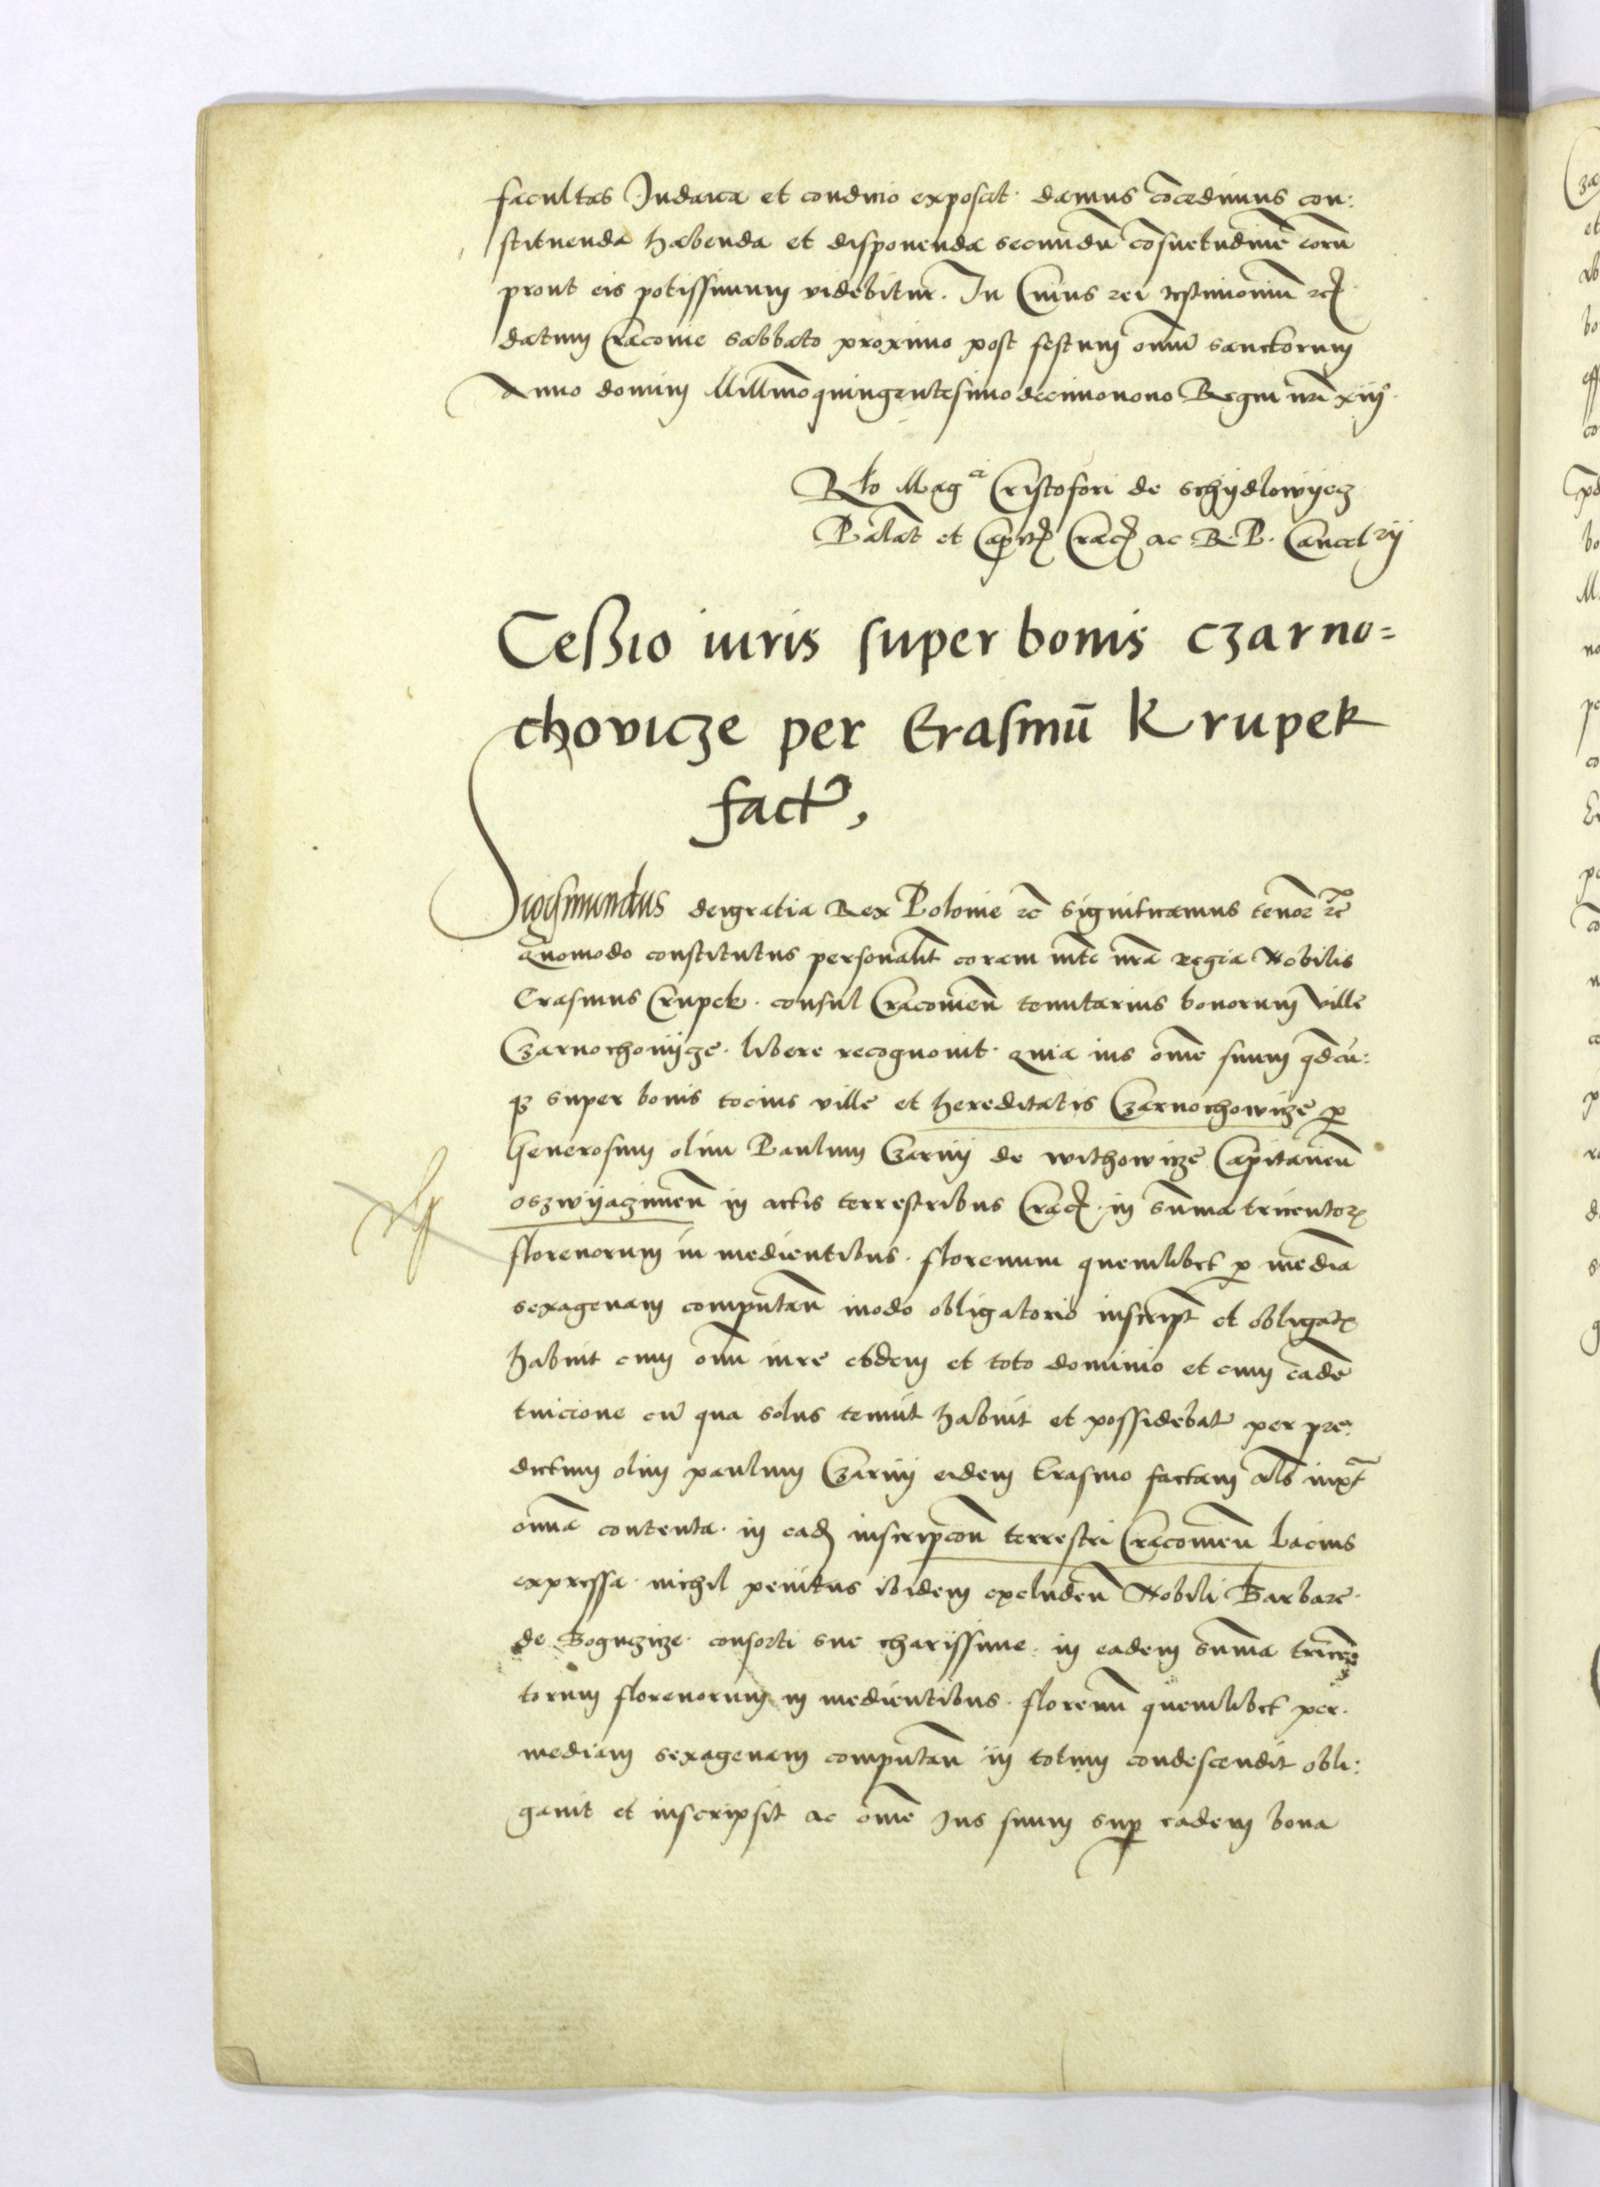 facultas Judaica et condicio exposcit. damus cōcedimus con:
stituenda habenda et disponenda secundū cōsuetudinē eorū
prout eis potissimum videbitur. In Cuius rei testimonium rc
datum Cracovie sabbato proximo post festum omniū sanctorum
Anno domini Millmoquingentesimodecimonono Regni nrī xiijº.
Rlo Magci Cristofori de Schydlowyecz
Palat et Capit Crac ac R.P. Cancelrij
Ceßio iuris super bonis czarno=
chovicze per Erasmū Krupek
fact,
Sigismundus deigratia Rex Polonie rc significamus tenore rc
Quomodo constitutus personalit coram mte nrā regia Nobilis
Erasmus Crupek. consul Cracovien tenutarius bonorum ville
Czarnochovycze. libere recognovit. quia ius ome suum qdcū:
qȝ super bonis tocius ville et hereditatis Czarnochowicze p
Generosum olim Paulum Czarny de withowicze Capitaneū
oszwyaczimen in actis terrestribus Crac. in sūma tricentor
florenorum in medientibus. florenum quemlibet p mediā
sexagenam computan modo obligatorio inscript et obligat
habuit cum omi iure eodem et toto dominio et cum eadē
tuicione cū qua solus tenuit habuit et possidebat per pre:
dictum olim paulum Czarny eidem Erasmo factam als iuxt
omīa contenta. in ead inscripcon terrestri Cracovien lacius
expressa. nichil penitus ibidem excluden Nobili Barbare.
de Boguczicze. consorti sue charissime. in eadem sūma tricē
torum florenorum in medientibus. florenū quemlibet per.
mediam sexagenam computan in totum condescendit obli:
gavit et inscripsit ac ome Jus suum sup eadem bona